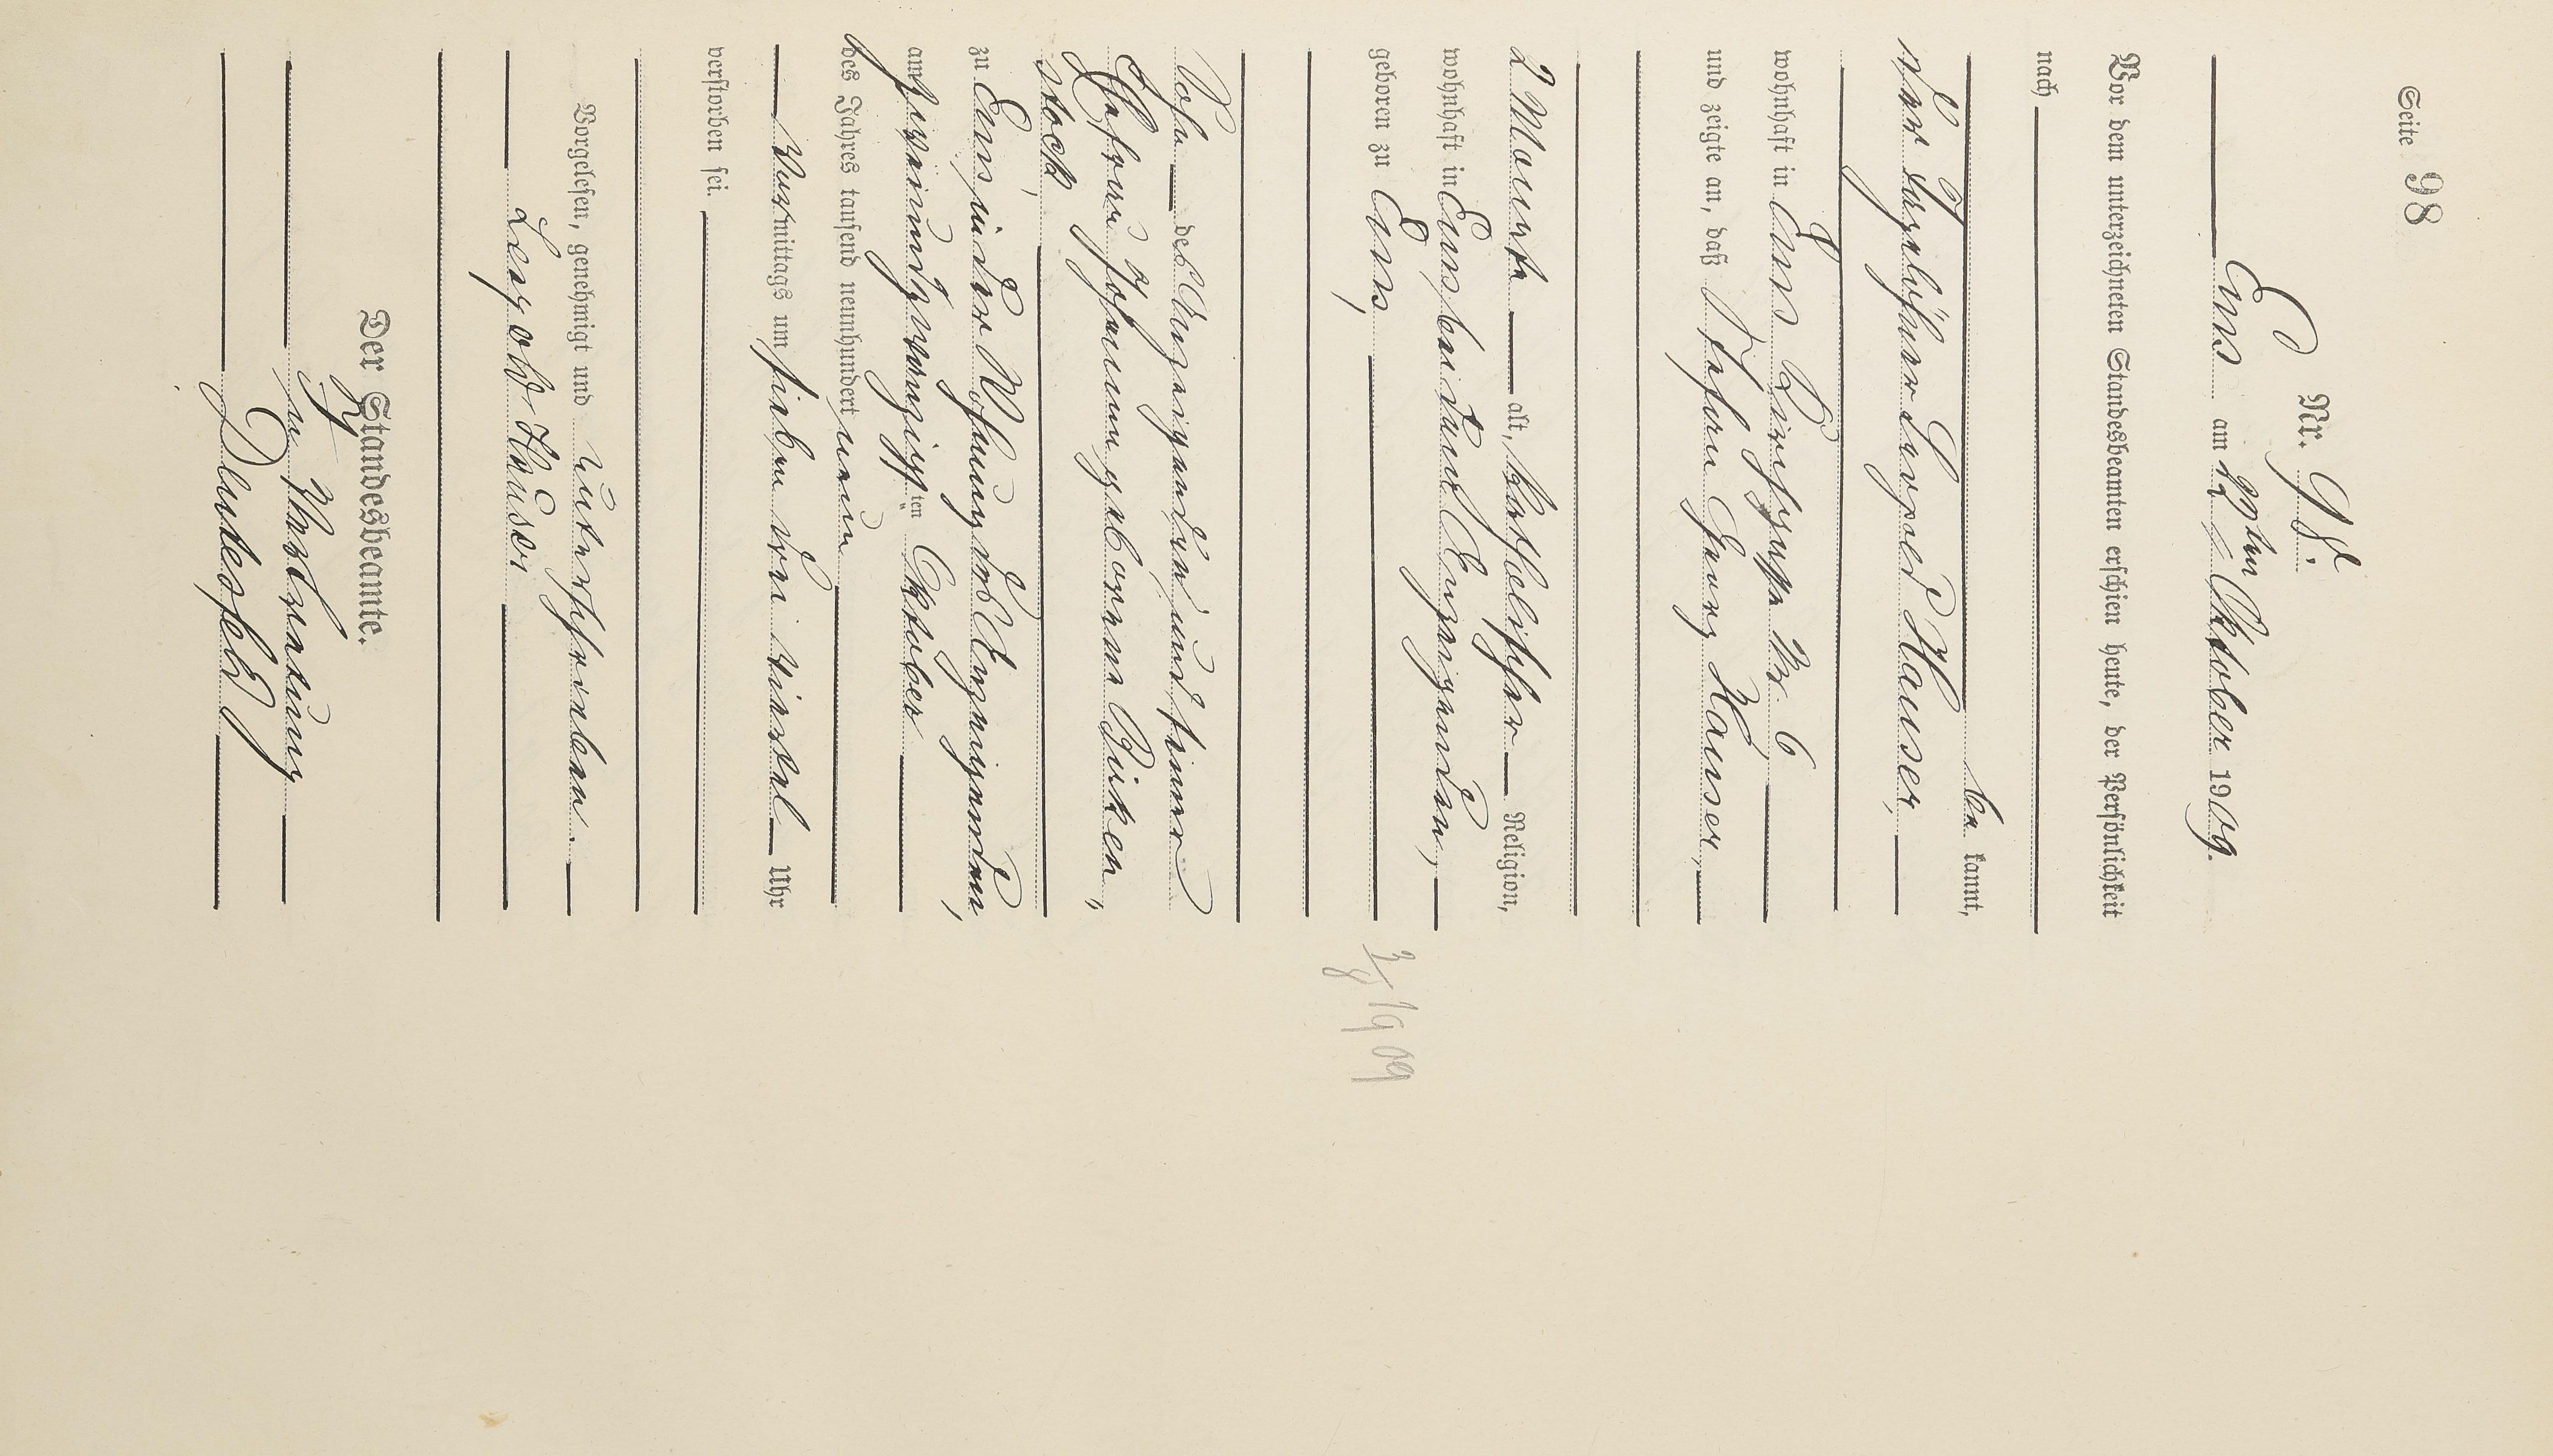 Seite 98
Nr. 98.
Ems am 27ten Oktober 1909.
Vor dem unterzeichneten Standesbeamten erschien heute, der Persönlichkeit
nach
be kannt,
der Tagelöhner Leopold Hauser,
wohnhaft in Ems Kirchgasse Nr. 6
und zeigte an, daß Johann Georg Hauser,
2 Monate alt, katholischer Religion,
wohnhaft in Ems bei dem Anzeigenden,
geboren zu Ems,
3/8 1909
Sohn des Anzeigenden und seiner
Ehefrau Johanna geborene Büken,
stock
zu Ems, in der Wohnung des Anzeigenden,
am siebenundzwanzigsten Oktober
des Jahres tausend neunhundert neun
Vormittags um sieben drei viertel Uhr
verstorben sei.
Vorgelesen, genehmigt und unterschrieben.
Leopold Hauser
Der Standesbeamte.
In Vertretung